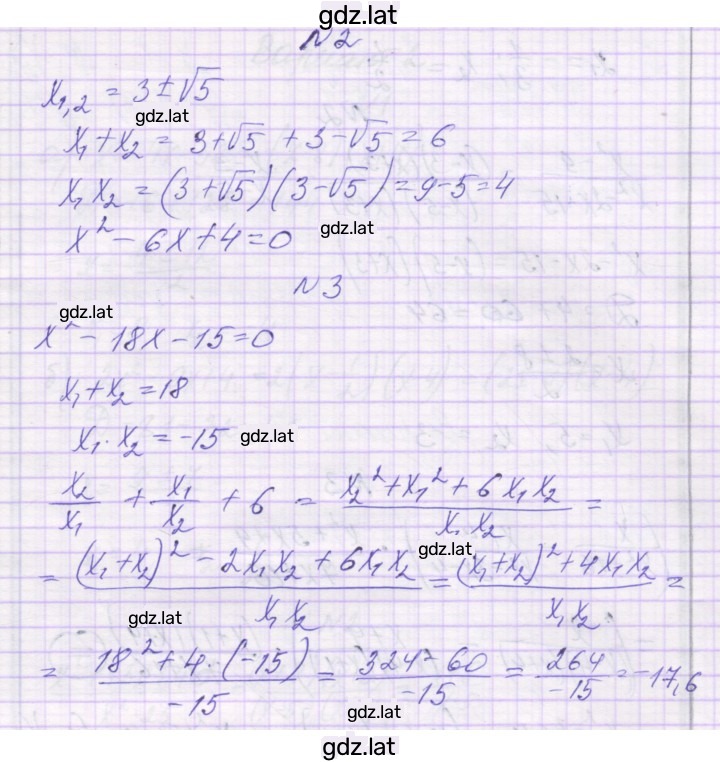 gdz.lat
N2
x₁,₂ = 3 ± √5
gdz.lat
x₁ + x₂ = 3 + √5 + 3 - √5 = 6
x₁ x₂ = (3 + √5)(3 - √5) = 9 - 5 = 4
x² - 6x + 4 = 0 gdz.lat
N3
gdz.lat
x² - 18x - 15 = 0
x₁ + x₂ = 18
x₁ · x₂ = -15 gdz.lat
x₂/x₁ + x₁/x₂ + 6 = (x₂² + x₁² + 6x₁x₂)/(x₁x₂) =
gdz.lat
= ((x₁ + x₂)² - 2x₁x₂ + 6x₁x₂)/(x₁x₂) = ((x₁ + x₂)² + 4x₁x₂)/(x₁x₂) =
gdz.lat
= (18² + 4 · (-15))/(-15) = (324 - 60)/(-15) = 264/(-15) = -17,6
gdz.lat
gdz.lat